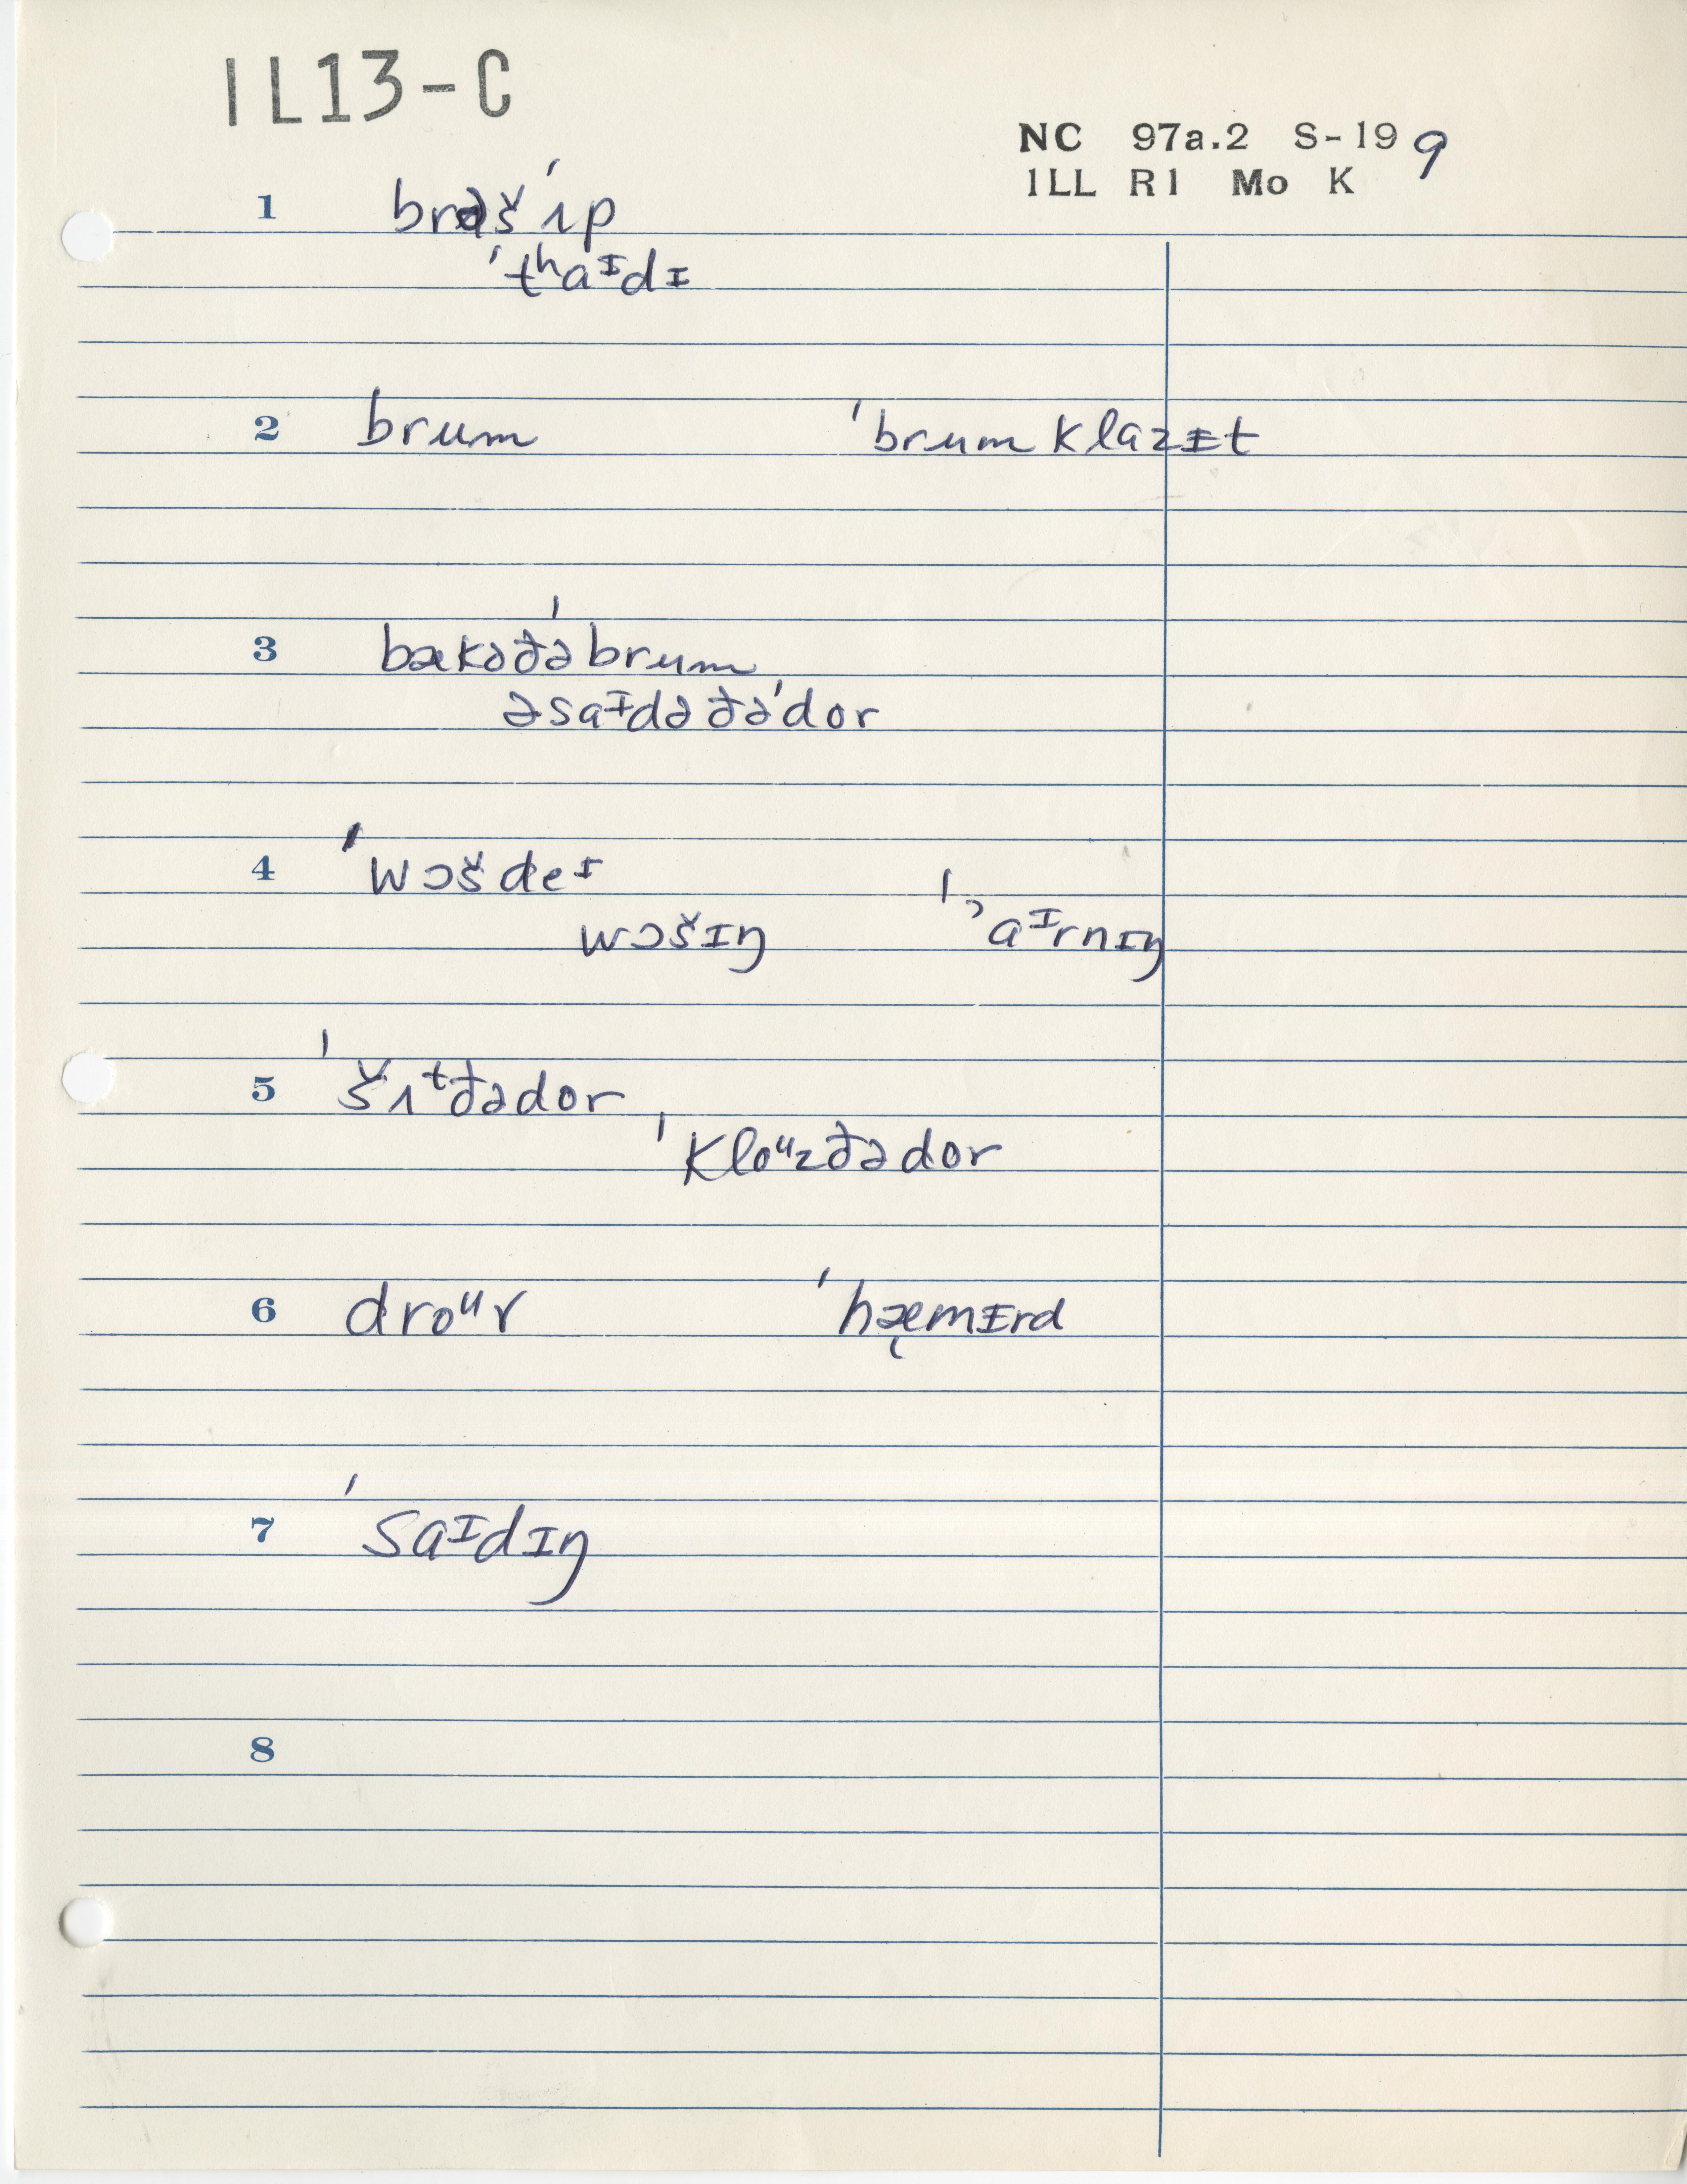 IL13-C
NC 97a.2 S-19 9
ILL R1 Mo K
1 brəš'ɪp
'tʰaᶦdɪ
2 brum 'brumklazɪt
3 bækəðə'brum
əsaᶦdəðə'dor
4 'wɔšdeᶦ
wɔšɪŋ 'ʾaᶦrnɪŋ
5 'šɪᵗðədor
'kloᵘzðədor
6 droᵘr 'hæ̨mɪrd
7 'saᶦdɪŋ
8